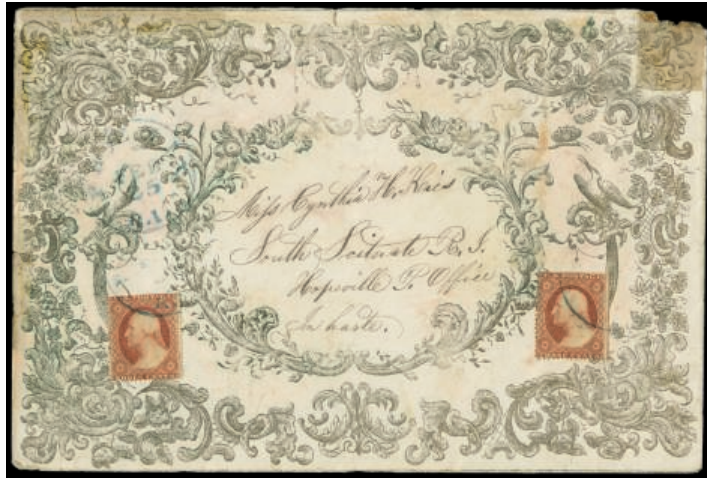 25
R.I.
Miss Cynthia H.
South Scituate R. I.
Hopeville P. Office
In haste.